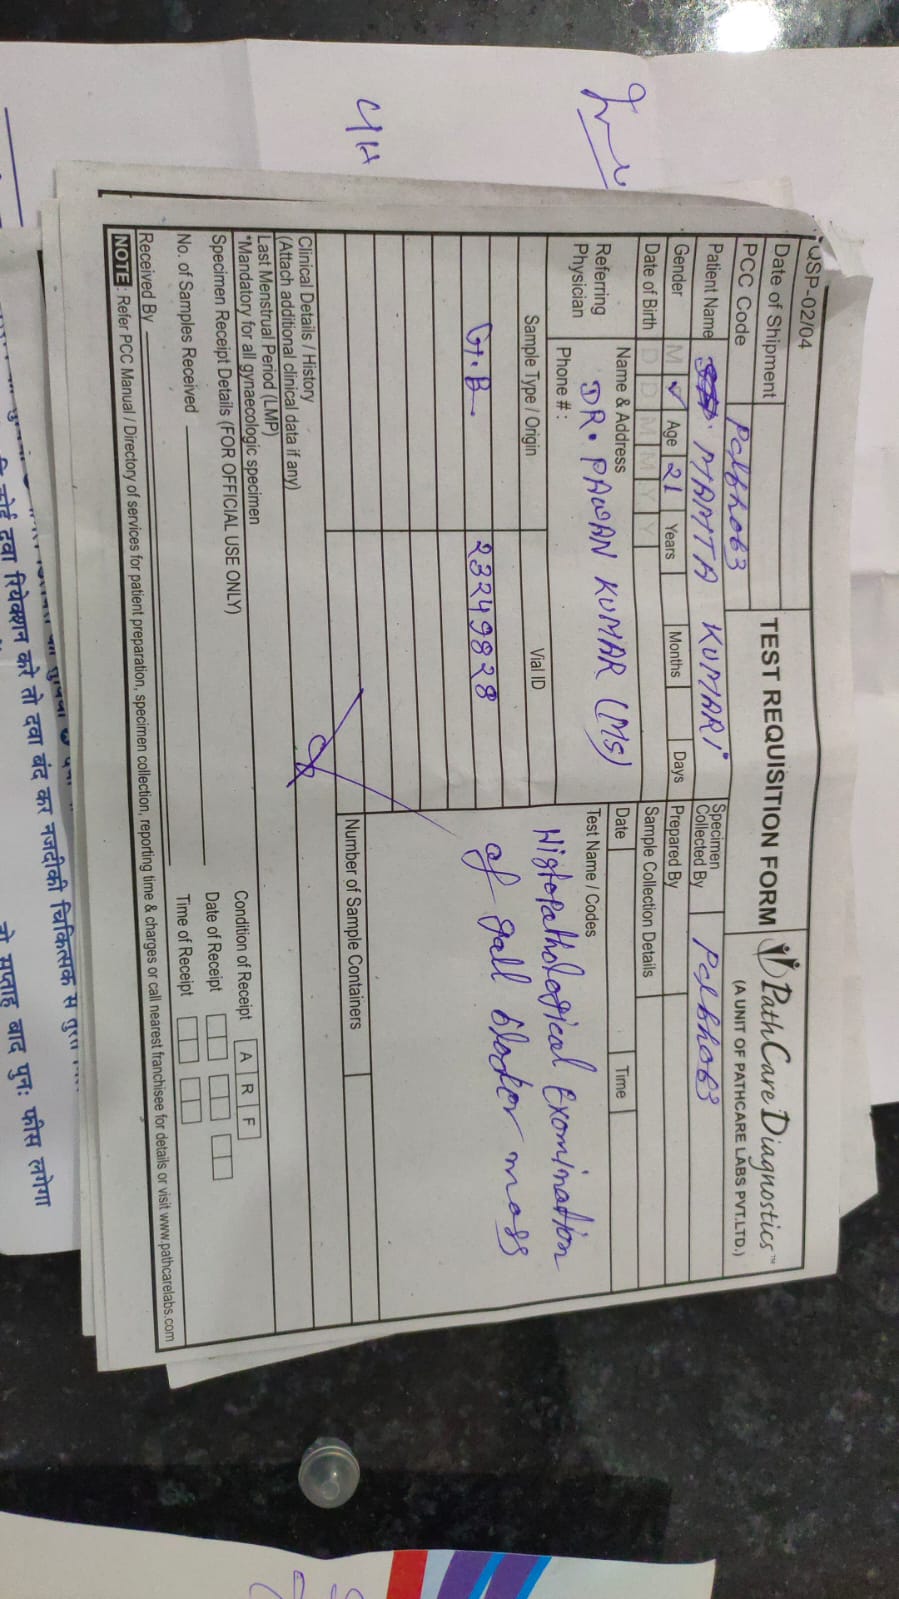 QSP-02/04
TEST REQUISITION FORM
PathCare Diagnostics™
(A UNIT OF PATHCARE LABS PVT.LTD.)
Date of Shipment
PCC Code Pclbh063
Specimen Collected By Pclbh063
Patient Name MAMTA KUMARI
Gender M ✓ Age 21 Years Months Days
Prepared By
Date of Birth D D M M Y Y
Sample Collection Details
Date Time
Referring Physician
Name & Address
DR. PAWAN KUMAR (MS)
Phone # :
Test Name / Codes
Histopathological Examination
of gall blader mass
Sample Type / Origin Vial ID
G.B. 23249828
Number of Sample Containers
Clinical Details / History
(Attach additional clinical data if any)
Last Menstrual Period (LMP)
*Mandatory for all gynaecologic specimen
Specimen Receipt Details (FOR OFFICIAL USE ONLY)
No. of Samples Received
Condition of Receipt A R F
Date of Receipt
Time of Receipt
Received By
NOTE : Refer PCC Manual / Directory of services for patient preparation, specimen collection, reporting time & charges or call nearest franchisee for details or visit www.pathcarelabs.com
कोई दवा रियेक्शन करे तो दवा बंद कर नजदीकी चिकित्सक से
सप्ताह बाद पुनः फीस लगेगा